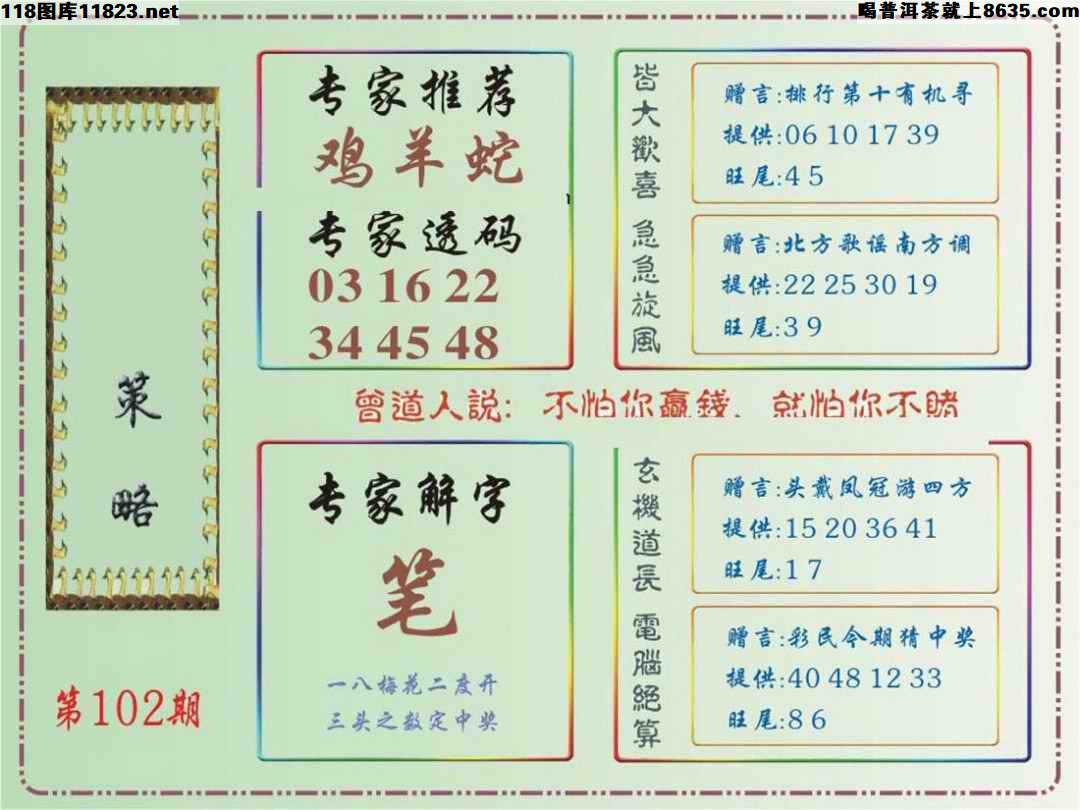 118图库11823.net
喝普洱茶就上8635.com
策
略
第102期
专家推荐
鸡羊蛇
专家透码
03 16 22
34 45 48
皆大歡喜
赠言:排行第十有机寻
提供:06 10 17 39
旺尾:4 5
急急旋風
赠言:北方歌谣南方调
提供:22 25 30 19
旺尾:3 9
曾道人説: 不怕你贏錢, 就怕你不賭
专家解字
笔
一八梅花二度开
三头之数定中奖
玄機道長
赠言:头戴凤冠游四方
提供:15 20 36 41
旺尾:1 7
電腦絕算
赠言:彩民今期猜中奖
提供:40 48 12 33
旺尾:8 6